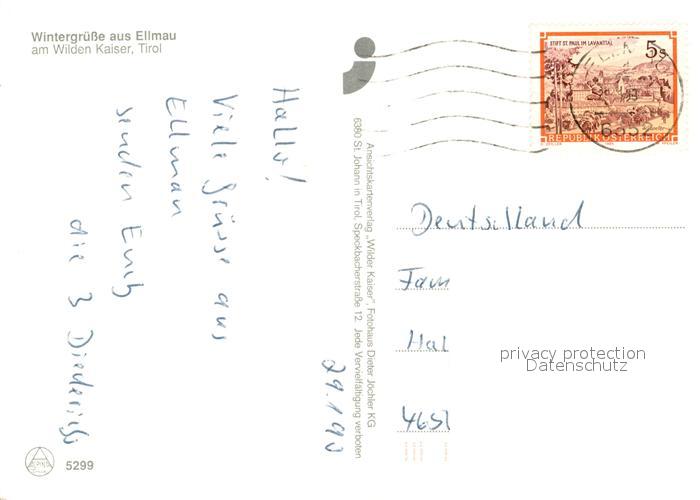 Wintergrüße aus Ellmau
am Wilden Kaiser, Tirol
Hallo!
Viele Grüsse aus
Ellmau
senden Euch
die 3 Diederichs
29.1.90
Ansichtskartenverlag „Wilder Kaiser", Fotohaus Dieter Jöchler KG
6380 St. Johann in Tirol, Speckbacherstraße 12 Jede Vervielfältigung verboten
STIFT ST. PAUL IM LAVANTTAL
5s
REPUBLIK ÖSTERREICH
6352
Deutschland
Fam
Hal
privacy protection
Datenschutz
4651
5299